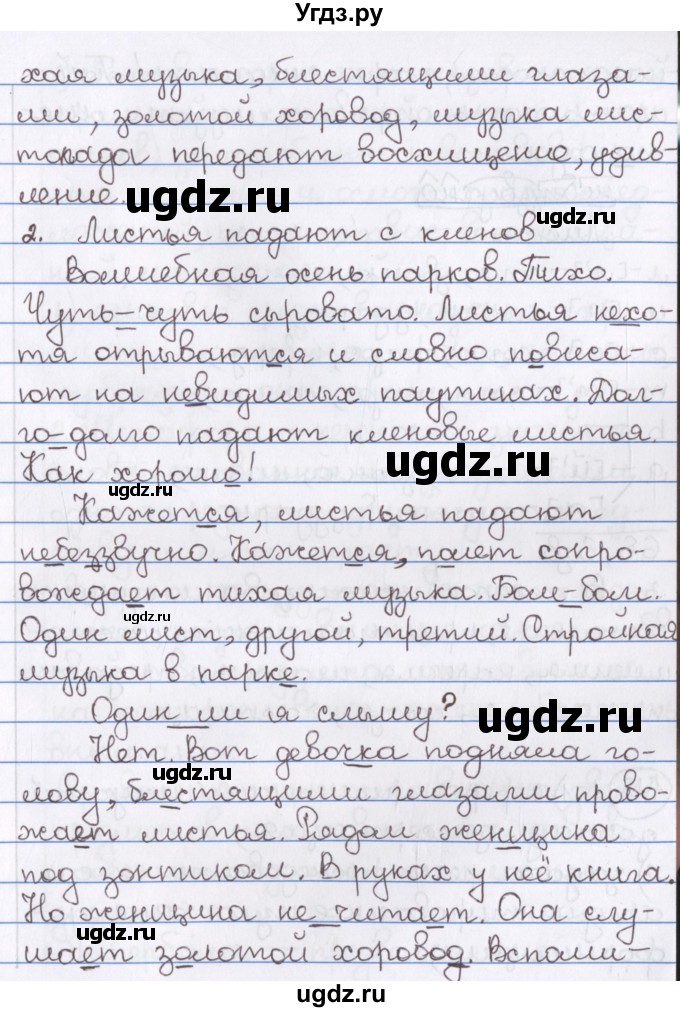 Угдз.ру
хая музыка, блестящими глаза-
ми, золотой хоровод, музыка лис-
топада передают восхищение, удив-
ление.
ugdz.ru
ugdz.ru
2. Листья падают с кленов
Волшебная осень парков. Тихо.
Чуть-чуть сыровато. Листья нехо-
тя отрываются и словно повиса-
ют на невидимых паутинах. Дол-
го-долго падают кленовые листья.
Как хорошо!
ugdz.ru
ugdz.ru
Кажется, листья падают
небеззвучно. Кажется, полет сопро-
вождает тихая музыка. Бом-бом.
ugdz.ru
Один лист, другой, третий. Стройная
музыка в парке.
Один ли я слышу?
ugdz.ru
Нет. Вот девочка подняла го-
ugdz.ru
лову, блестящими глазами прово-
жает листья. Рядом женщина
под зонтиком. В руках у неё книга.
Но женщина не читает. Она слу-
ugdz.ru
шает золотой хоровод. Вспоми-
ugdz.ru